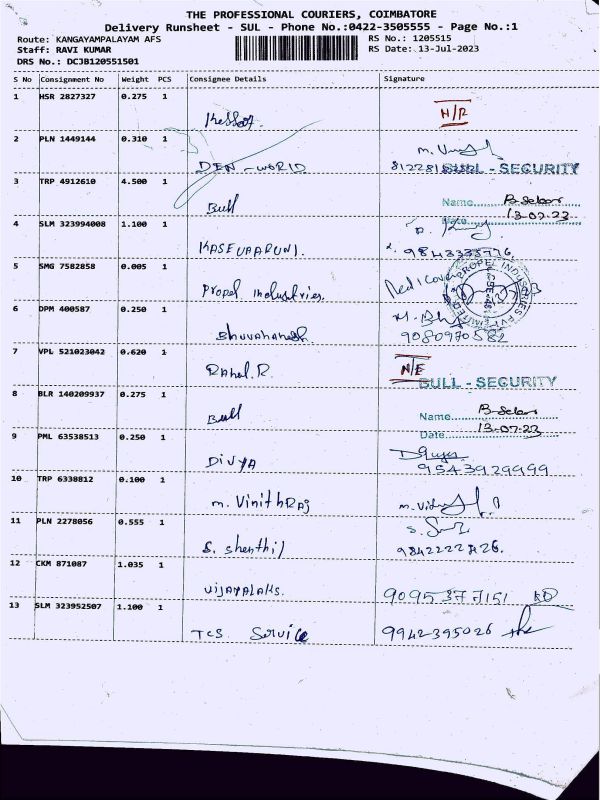 THE PROFESSIONAL COURIERS, COIMBATORE
Delivery Runsheet - SUL - Phone No.:0422-3505555 - Page No.:1
Route: KANGAYAMPALAYAM AFS
RS No.: 1205515
Staff: RAVI KUMAR
RS Date: 13-Jul-2023
DRS No.: DCJB120551501
S No Consignment No Weight PCS Consignee Details Signature
1 HSR 2827327 0.275 1
N/R
2 PLN 1449144 0.310 1
DEN-WORLD
BULL - SECURITY
3 TRP 4912610 4.500 1
Bull
Name
Date 13-07-23
4 SLM 323994008 1.100 1
5 SMG 7582858 0.005 1
Propel Industries.
PROPEL INDUSTRIES
6 DPM 400587 0.250 1
9080970582
7 VPL 521023042 0.620 1
Rahul.R
N/E
BULL - SECURITY
8 BLR 140209937 0.275 1
Bull
Name
Date 13-07-23
9 PML 63538513 0.250 1
DIVYA
9543929999
10 TRP 6338812 0.100 1
M. Vinith Raj
11 PLN 2278056 0.555 1
S. Shenthil
12 CKM 871087 1.035 1
VIJAYALAKS.
9095377151
13 SLM 323952507 1.100 1
TCS Service
9942395026